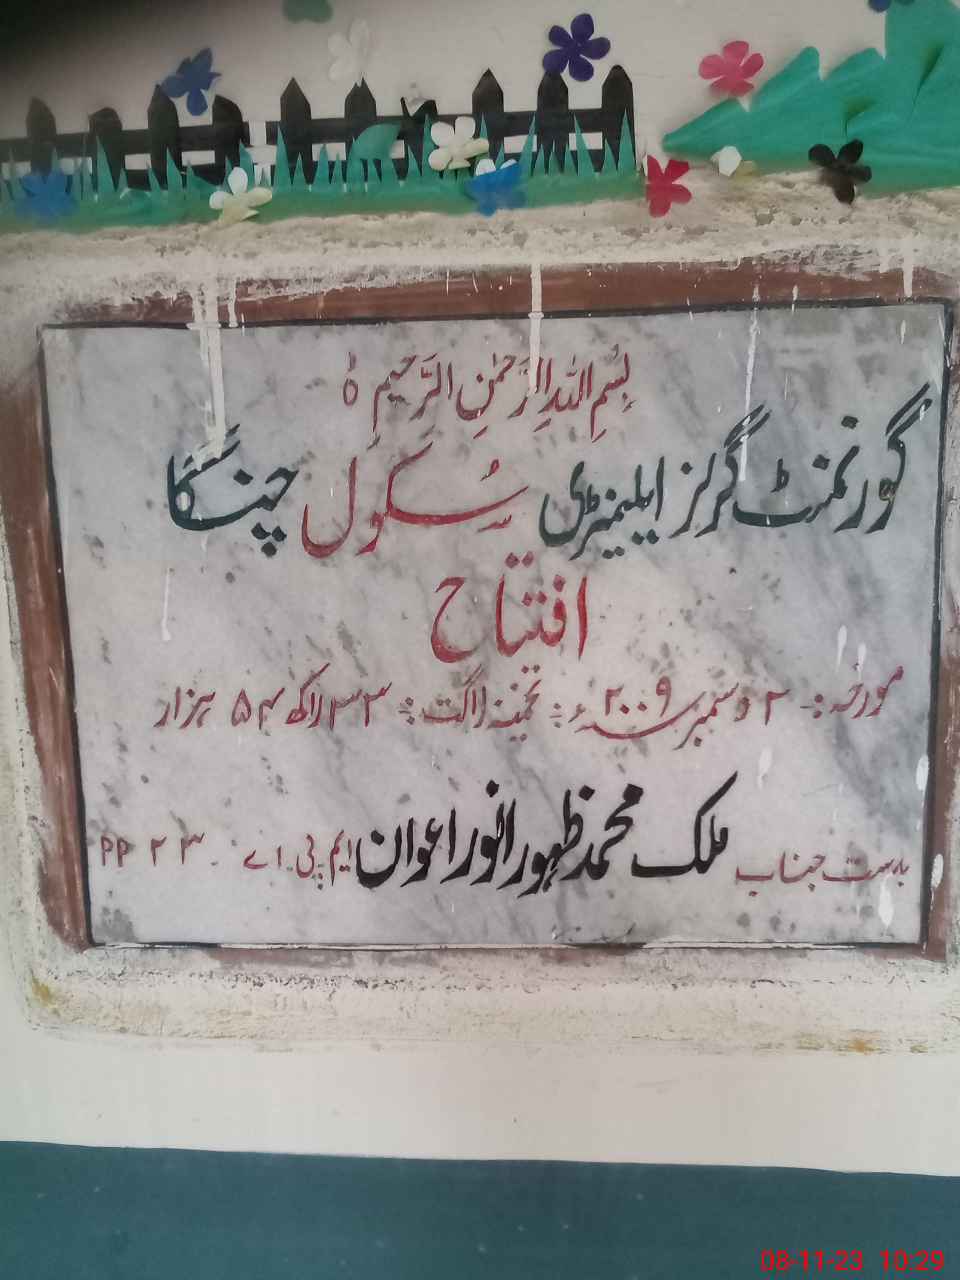 بِسْمِ اللہِ الرَّحْمٰنِ الرَّحِیْمِ ہ
گورنمنٹ گرلز ایلیمنٹری سکول چنگا
افتتاح
مورخہ :- ۲ دسمبر سنہ ۲۰۰۹ء :- تخمینہ لاگت :- ۳۳ لاکھ ۵۴ ہزار
بدست جناب ملک محمد ظہور انور اعوان ایم.پی.اے . PP ۲۳
08-11-23 10:29